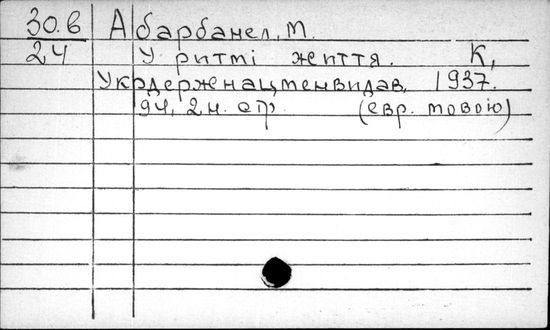 30.в Абарбанел, М.
24 У ритмі життя. К,
Укрдержнацменвидав, 1937.
94, 2 н. стр. (евр. мовою)